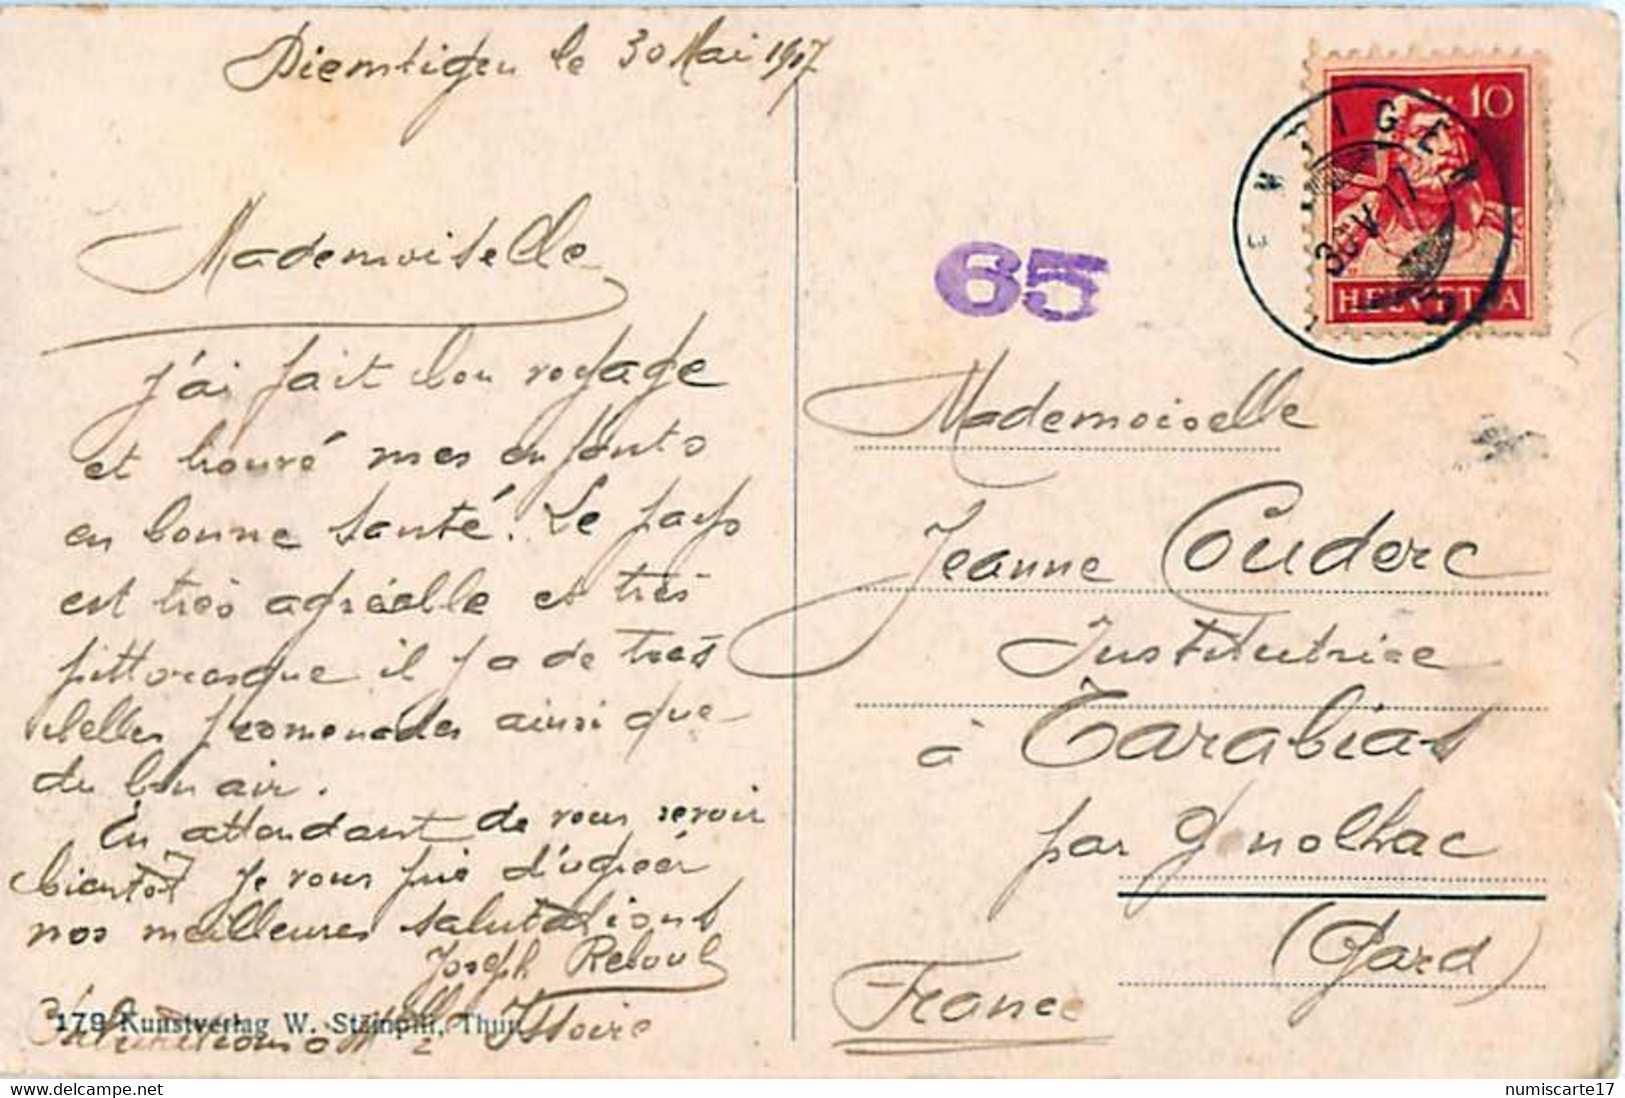 Diemtigen le 30 Mai 1917
Mademoiselle
J'ai fait bon voyage
et trouvé mes enfants
en bonne santé. Le pays
est très agréable et très
pittoresque il y a de très
belles promenades ainsi que
du bon air.
En attendant de vous revoir
bientôt je vous prie d'agréer
nos meilleures salutations
Joseph Reboul
179 Kunstverlag W. Stämpfli, Thun
65
EMTIGEN
30 V 17
10
HELVETIA
Mademoiselle
Jeanne Couderc
Institutrice
à Tarabias
par Génolhac
(Gard)
France
numiscarte17